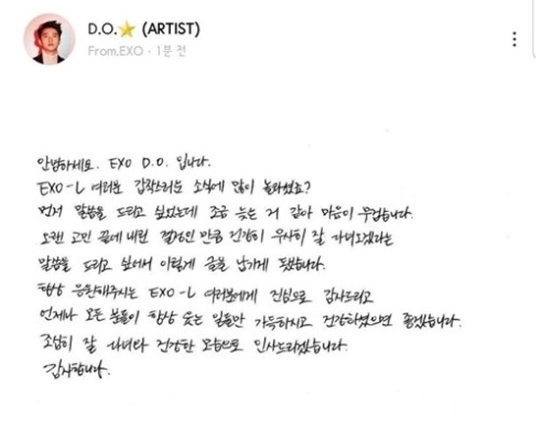 D.O.⭐ (ARTIST)
From.EXO · 1분 전
안녕하세요. EXO D.O. 입니다.
EXO-L 여러분 갑작스러운 소식에 많이 놀라셨죠?
먼저 말씀을 드리고 싶었는데 조금 늦은 거 같아 마음이 무겁습니다.
오랜 고민 끝에 내린 결정인 만큼 건강히 무사히 잘 다녀오겠다는
말씀을 드리고 싶어서 이렇게 글을 남기게 됐습니다.
항상 응원해주시는 EXO-L 여러분에게 진심으로 감사드리고
언제나 모든 분들이 항상 웃는 일들만 가득하시고 건강하셨으면 좋겠습니다.
조심히 잘 다녀와 건강한 모습으로 인사드리겠습니다.
감사합니다.